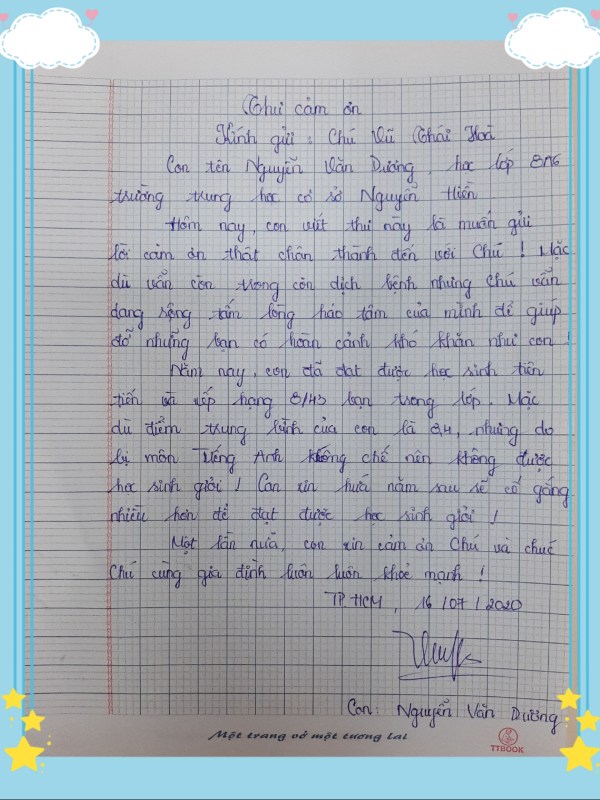 Thư cảm ơn
Kính gửi : Chú Vũ Thái Hoà
Con tên Nguyễn Văn Dương, học lớp 8A6
trường trung học cơ sở Nguyễn Hiền
Hôm nay, con viết thư này là muốn gửi
lời cảm ơn thật chân thành đến với Chú ! Mặc
dù vẫn còn trong cơn dịch bệnh nhưng Chú vẫn
dang rộng tấm lòng hảo tâm của mình để giúp
đỡ những bạn có hoàn cảnh khó khăn như con !
Năm nay, con đã đạt được học sinh tiên
tiến và xếp hạng 8/43 bạn trong lớp. Mặc
dù điểm trung bình của con là 8,4, nhưng do
bị môn Tiếng Anh khống chế nên không được
học sinh giỏi ! Con xin hứa năm sau sẽ cố gắng
nhiều hơn để đạt được học sinh giỏi !
Một lần nữa, con xin cảm ơn Chú và chúc
Chú cùng gia đình luôn luôn khoẻ mạnh !
TP.HCM, 16/07/2020
Con: Nguyễn Văn Dương
Một trang vở một tương lai
TTBOOK